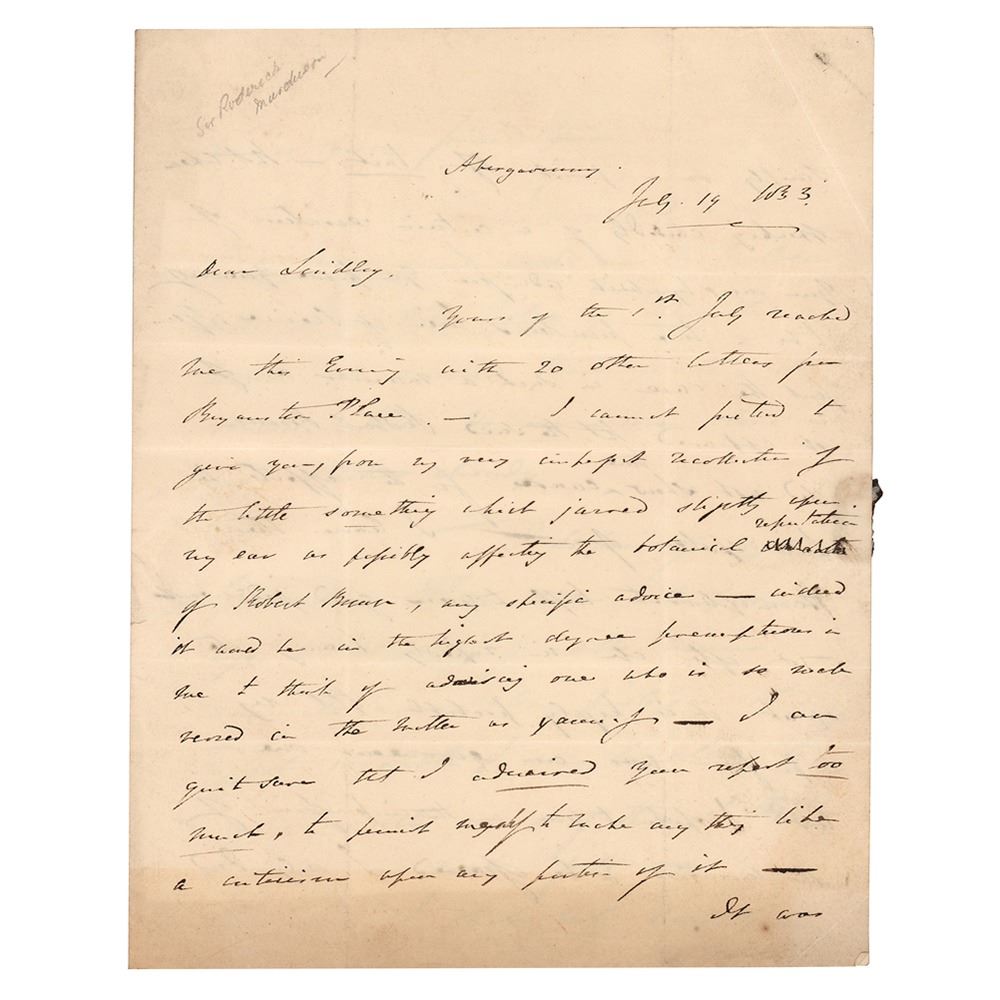 Sir Roderick
Murchison
Abergavenny.
July. 19 1833.
Dear Lindley.
Yours of the 1st. July reached
me this Evening with 20 other letters per
Bryanston Place. — I cannot pretend to
give you, from my very imperfect recollection of
the little something which jarred slightly upon
my ear as possibly affecting the botanical reputation
of Robert Brown, any specific advice — indeed
it would be in the highest degree presumptuous in
me to think of advising one who is so well
versed in the matter as yourself — I am
quite sure that I admired your report too
much, to permit myself to make any thing like
a criticism upon any portion of it —
It was